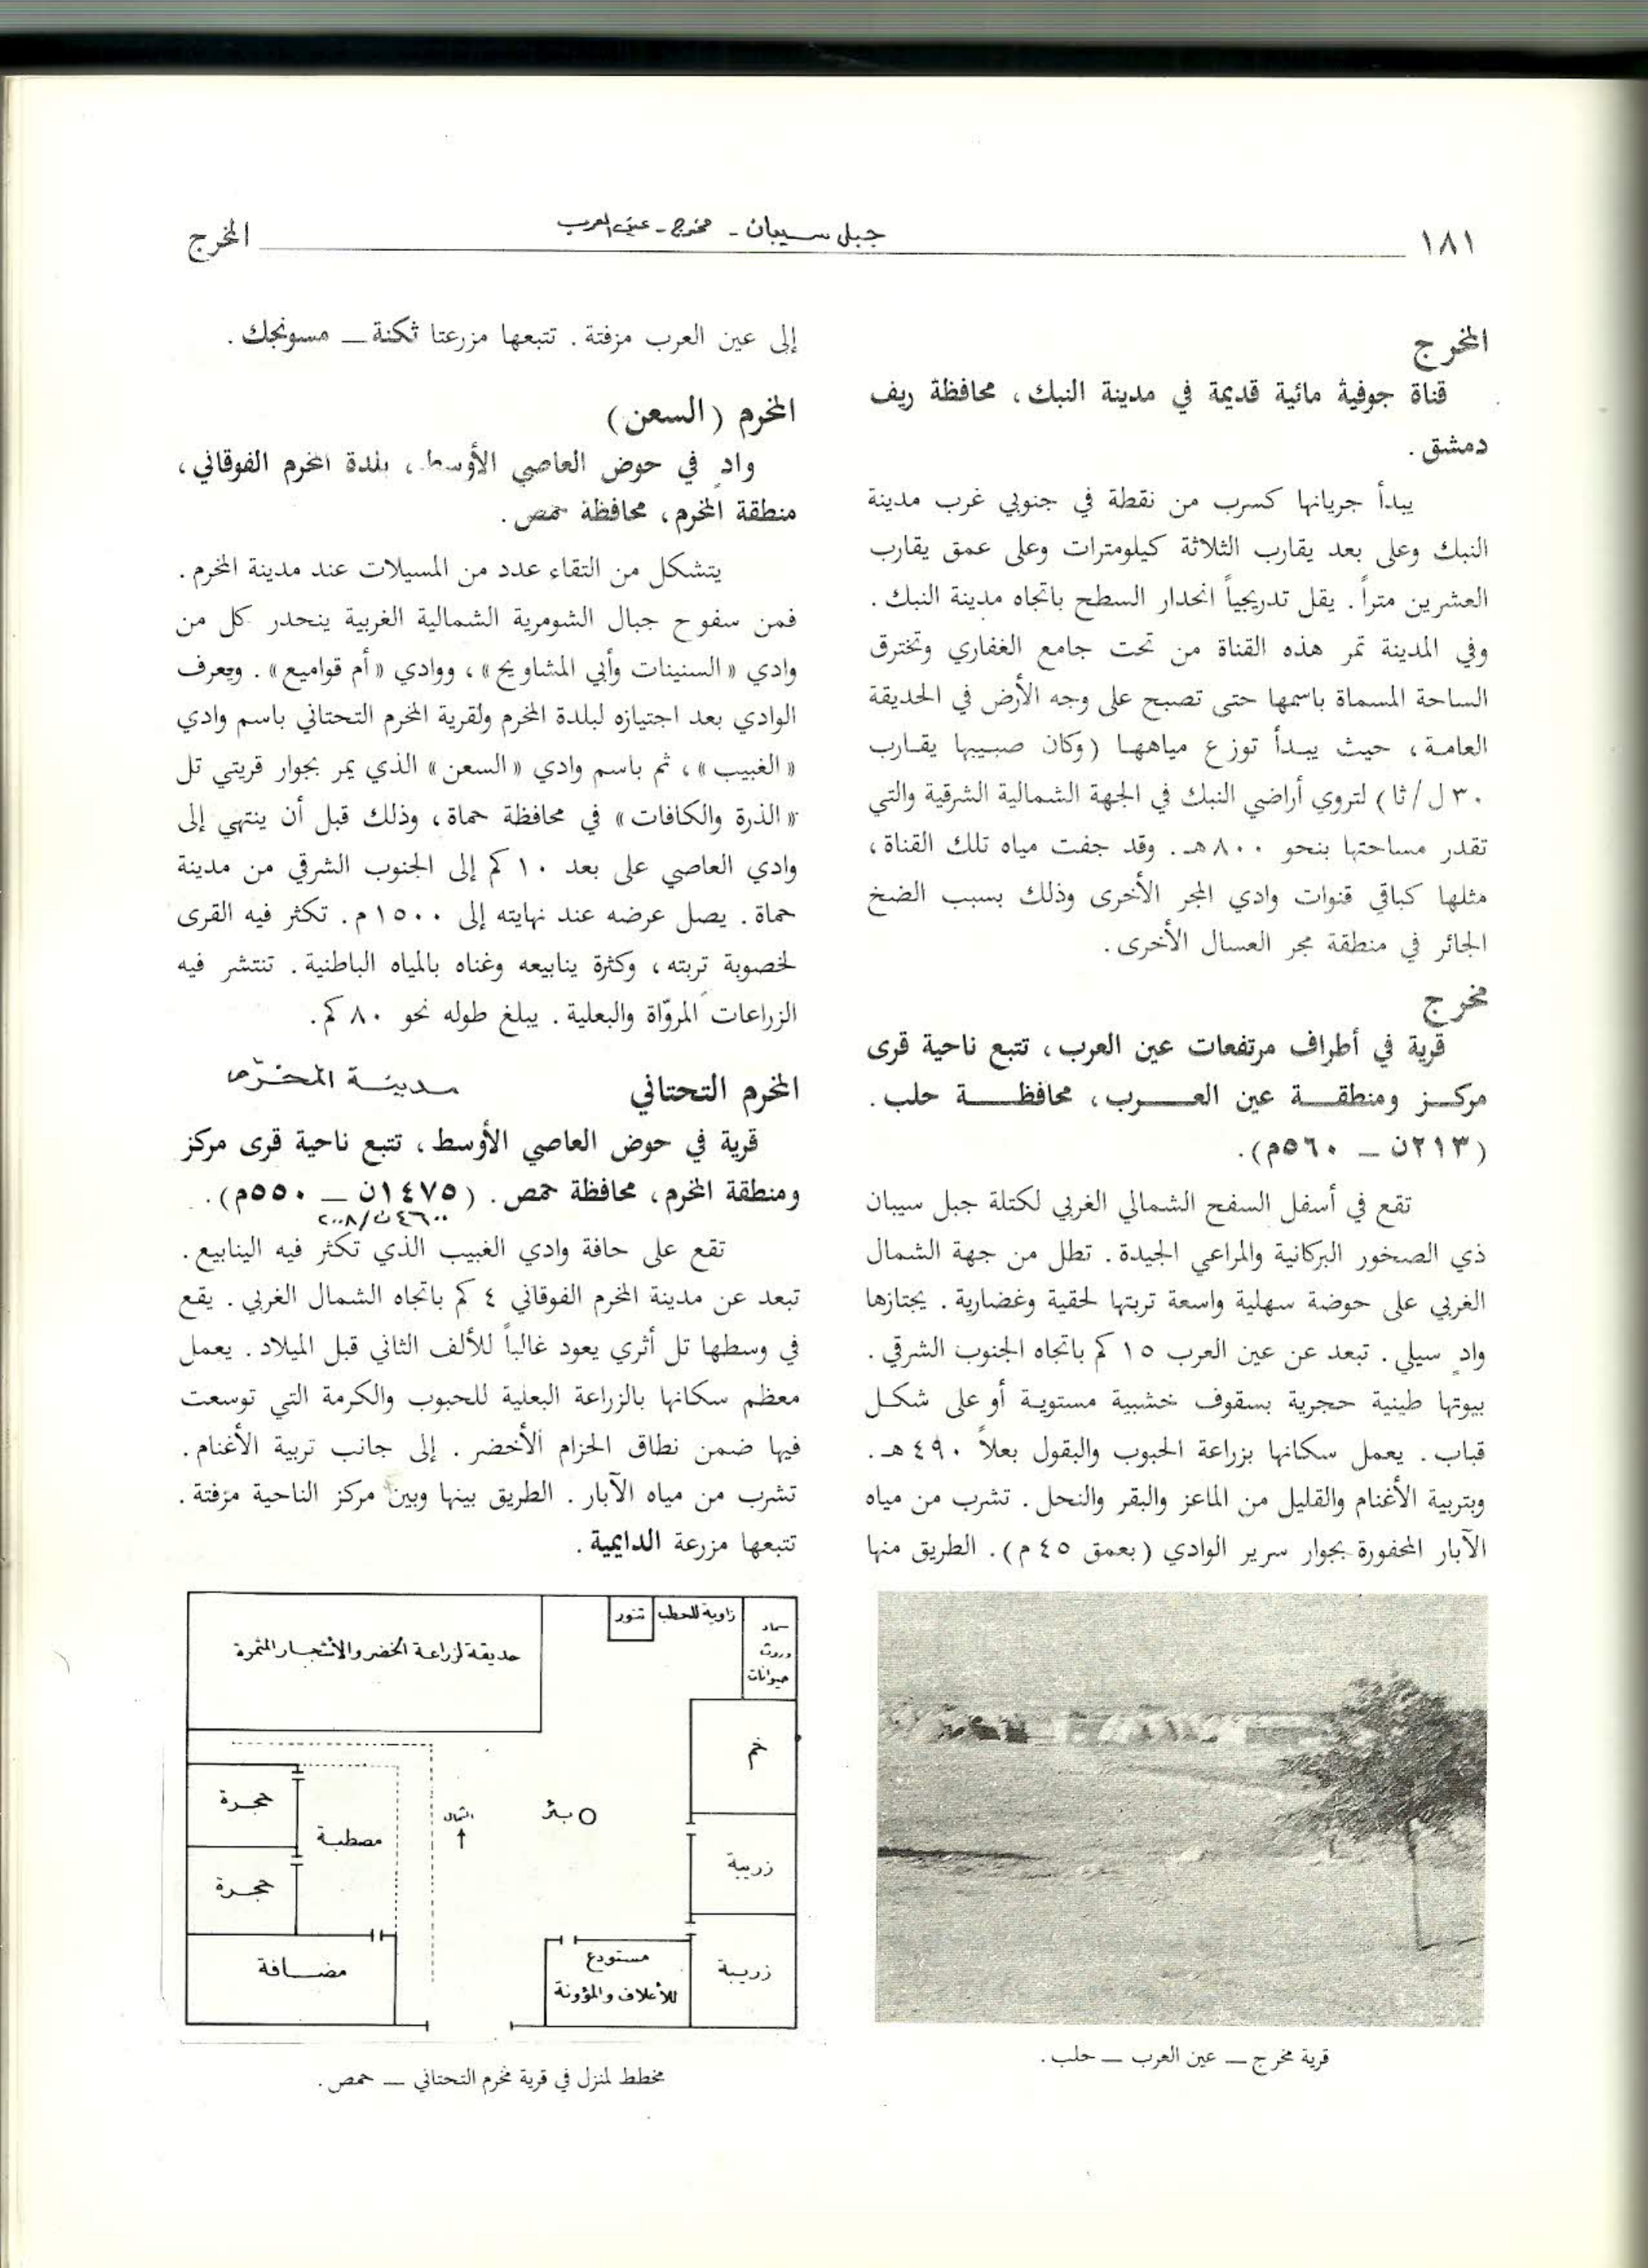 ١٨١
جبل سيبان - مخرج - عين العرب
المخرج
المخرج
قناة جوفية مائية قديمة في مدينة النبك، محافظة ريف
دمشق.
يبدأ جريانها كسرب من نقطة في جنوبي غرب مدينة
النبك وعلى بعد يقارب الثلاثة كيلومترات وعلى عمق يقارب
العشرين متراً. يقل تدريجياً انحدار السطح باتجاه مدينة النبك.
وفي المدينة تمر هذه القناة من تحت جامع الغفاري وتخترق
الساحة المسماة باسمها حتى تصبح على وجه الأرض في الحديقة
العامة، حيث يبدأ توزع مياهها (وكان صبيبها يقارب
٣٠ ل/ثا) لتروي أراضي النبك في الجهة الشمالية الشرقية والتي
تقدر مساحتها بنحو ٨٠٠هـ. وقد جفت مياه تلك القناة،
مثلها كباقي قنوات وادي المجر الأخرى وذلك بسبب الضخ
الجائر في منطقة مجر العسال الأخرى.
مخرج
قرية في أطراف مرتفعات عين العرب، تتبع ناحية قرى
مركز ومنطقة عين العرب، محافظة حلب.
(٢١٣ن — ٥٦٠م).
تقع في أسفل السفح الشمالي الغربي لكتلة جبل سيبان
ذي الصخور البركانية والمراعي الجيدة. تطل من جهة الشمال
الغربي على حوضة سهلية واسعة تربتها لحقية وغضارية. يجتازها
وادٍ سيلي. تبعد عن عين العرب ١٥ كم باتجاه الجنوب الشرقي.
بيوتها طينية حجرية بسقوف خشبية مستوية أو على شكل
قباب. يعمل سكانها بزراعة الحبوب والبقول بعلاً ٤٩٠هـ.
وبتربية الأغنام والقليل من الماعز والبقر والنحل. تشرب من مياه
الآبار المحفورة بجوار سرير الوادي (بعمق ٤٥ م). الطريق منها
قرية مخرج — عين العرب — حلب.
إلى عين العرب مزفتة. تتبعها مزرعتا ثكنة — مسونجك.
المخرم (السعن)
وادٍ في حوض العاصي الأوسط، بلدة المخرم الفوقاني،
منطقة المخرم، محافظة حمص.
يتشكل من التقاء عدد من المسيلات عند مدينة المخرم.
فمن سفوح جبال الشومرية الشمالية الغربية ينحدر كل من
وادي «السنينات وأبي المشاويح»، ووادي «أم قواميع». ويعرف
الوادي بعد اجتيازه لبلدة المخرم ولقرية المخرم التحتاني باسم وادي
«الغبيب»، ثم باسم وادي «السعن» الذي يمر بجوار قريتي تل
«الذرة والكافات» في محافظة حماة، وذلك قبل أن ينتهي إلى
وادي العاصي على بعد ١٠ كم إلى الجنوب الشرقي من مدينة
حماة. يصل عرضه عند نهايته إلى ١٥٠٠م. تكثر فيه القرى
لخصوبة تربته، وكثرة ينابيعه وغناه بالمياه الباطنية. تنتشر فيه
الزراعات المروّاة والبعلية. يبلغ طوله نحو ٨٠ كم.
المخرم التحتاني مدينة المخرّم
قرية في حوض العاصي الأوسط، تتبع ناحية قرى مركز
ومنطقة المخرم، محافظة حمص. (١٤٧٥ن — ٥٥٠م).
٤٦٠٠ن/٢٠٠٨
تقع على حافة وادي الغبيب الذي تكثر فيه الينابيع.
تبعد عن مدينة المخرم الفوقاني ٤ كم باتجاه الشمال الغربي. يقع
في وسطها تل أثري يعود غالباً للألف الثاني قبل الميلاد. يعمل
معظم سكانها بالزراعة البعلية للحبوب والكرمة التي توسعت
فيها ضمن نطاق الحزام الأخضر. إلى جانب تربية الأغنام.
تشرب من مياه الآبار. الطريق بينها وبين مركز الناحية مزفتة.
تتبعها مزرعة الدايمية.
سماد
وروث
حيوانات
زاوية للحطب
تنور
حديقة لزراعة الخضر والأشجار المثمرة
خم
زريبة
زريبة
بئر
الشمال
حجرة
مصطبة
حجرة
مضافة
مستودع
للأعلاف والمؤونة
مخطط لمنزل في قرية مخرم التحتاني — حمص.